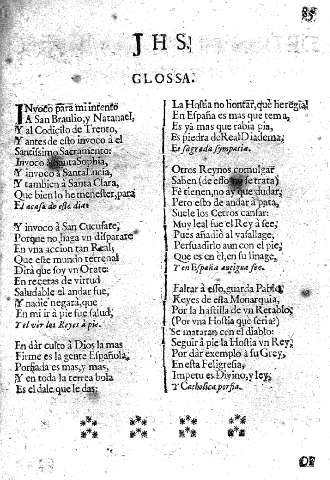 JHS;
GLOSSA.
INvoco para mi intento
A San Braulio, y Natanael,
Y al Codicilo de Trento,
Y antes de esto invoco â el
Santissimo Sacramento:
Invoco â Santa Sophia,
Y invoco â Santa Lucia,
Y tambien â Santa Clara,
Que bien lo he menester, para
El acaso de este dia.
Y invoco â San Cucufate;
Porque no haga vn disparate
En vna accion tan Real;
Que este mundo terrenal
Dirà que soy vn Orate:
En recetas de virtud
Saludable el andar fue,
Y nadie negarà, que
En mi ir â pie fue salud,
Y el vir los Reyes â pie.
En dàr culto â Dios la mas
Firme es la gente Española,
Porfiada es mas, y mas,
Y en toda la terrea bola
Es el dale que le das:
La Hostia no honrar, què heregia!
En España es mas que tema,
Es yà mas que rabia pia,
Es piedra de Real Diadema,
Es sagrada sympatia.
Otros Reynos comulgar
Saben (de esto no se trata)
Fè tienen, no ay que dudar,
Pero esto de andar â pata,
Suele los Cetros cansar:
Muy leal fue el Rey â fee,
Pues añadiò al vasallage,
Persuadirlo aun con el pie;
Que es en èl, en su linage,
Y en España antigua fee.
Faltar â esso, guarda Pablo,
Reyes de esta Monarquia,
Por la hastilla de vn Retablo,
(Por vna Hostia que seria!)
Se mataran con el diablo:
Seguir â pie la Hostia vn Rey,
Por dàr exemplo â su Grey,
En esta Feligresia,
Impetu es Divino, y ley,
Y Catholica porfia.